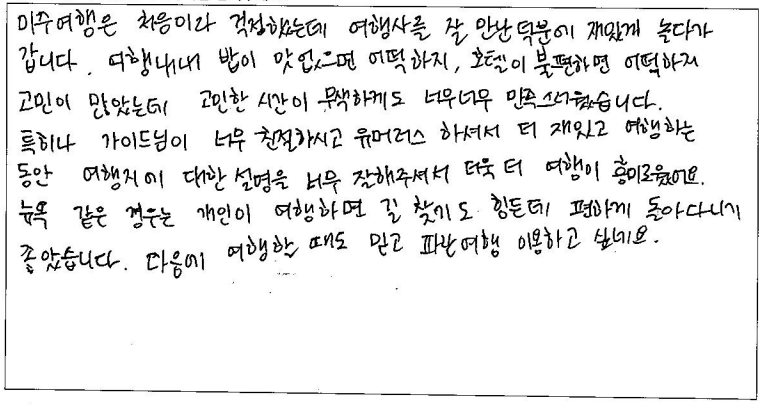 미주여행은 처음이라 걱정했는데 여행사를 잘 만난덕분에 재밌게 놀다가
갑니다. 여행내내 밥이 맛없으면 어떡하지, 호텔이 불편하면 어떡하지
고민이 많았는데 고민한 시간이 무색하게도 너무너무 만족스러웠습니다.
특히나 가이드님이 너무 친절하시고 유머러스 하셔서 더 재밌고 여행하는
동안 여행지에 대한 설명을 너무 잘해주셔서 더욱 더 여행이 흥미로웠어요.
뉴욕 같은 경우는 개인이 여행하면 길 찾기도 힘든데 편하게 돌아다니기
좋았습니다. 다음에 여행할 때도 믿고 파란여행 이용하고 싶네요.